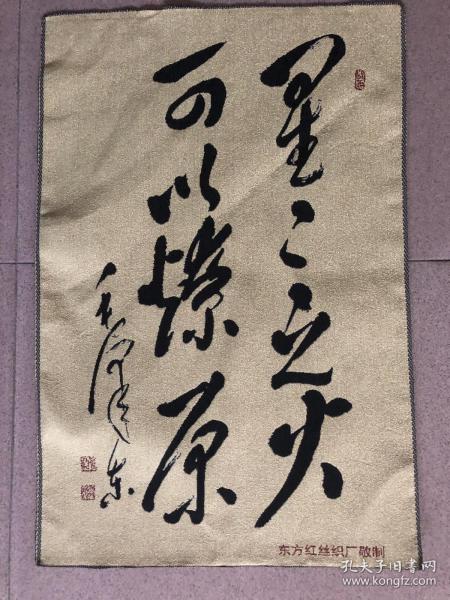 星〻之火
可以燎原
毛泽东
东方红丝织厂敬制
孔夫子旧书网
www.kongfz.com